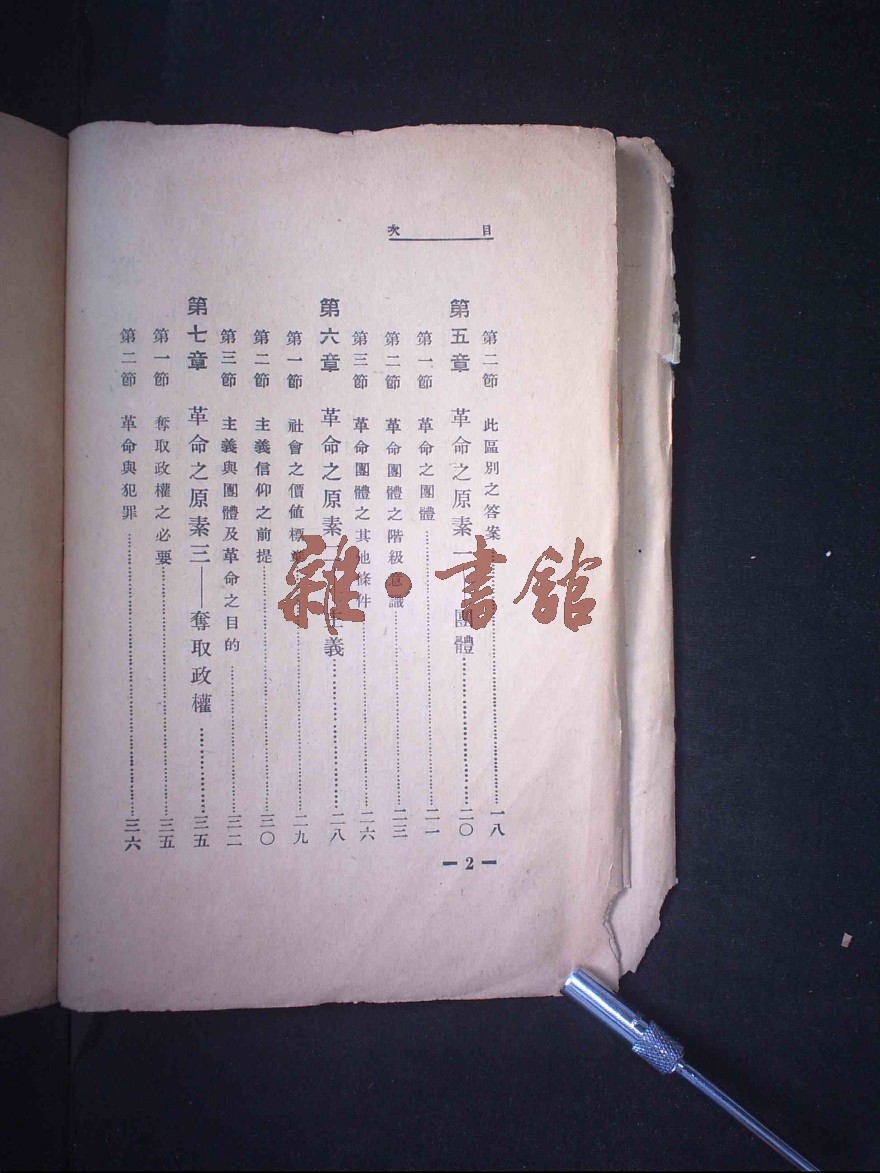 目次
第二節　此區別之答案……一八
第五章　革命之原素一　團體……二〇
第一節　革命之團體……二一
第二節　革命團體之階級意識……二三
第三節　革命團體之其他條件……二六
第六章　革命之原素二　主義……二八
第一節　社會之價値標準……二九
第二節　主義信仰之前提……三〇
第三節　主義與團體及革命之目的……三二
第七章　革命之原素三——奪取政權……三五
第一節　奪取政權之必要……三五
第二節　革命與犯罪……三六
— 2 —
雜·書舘